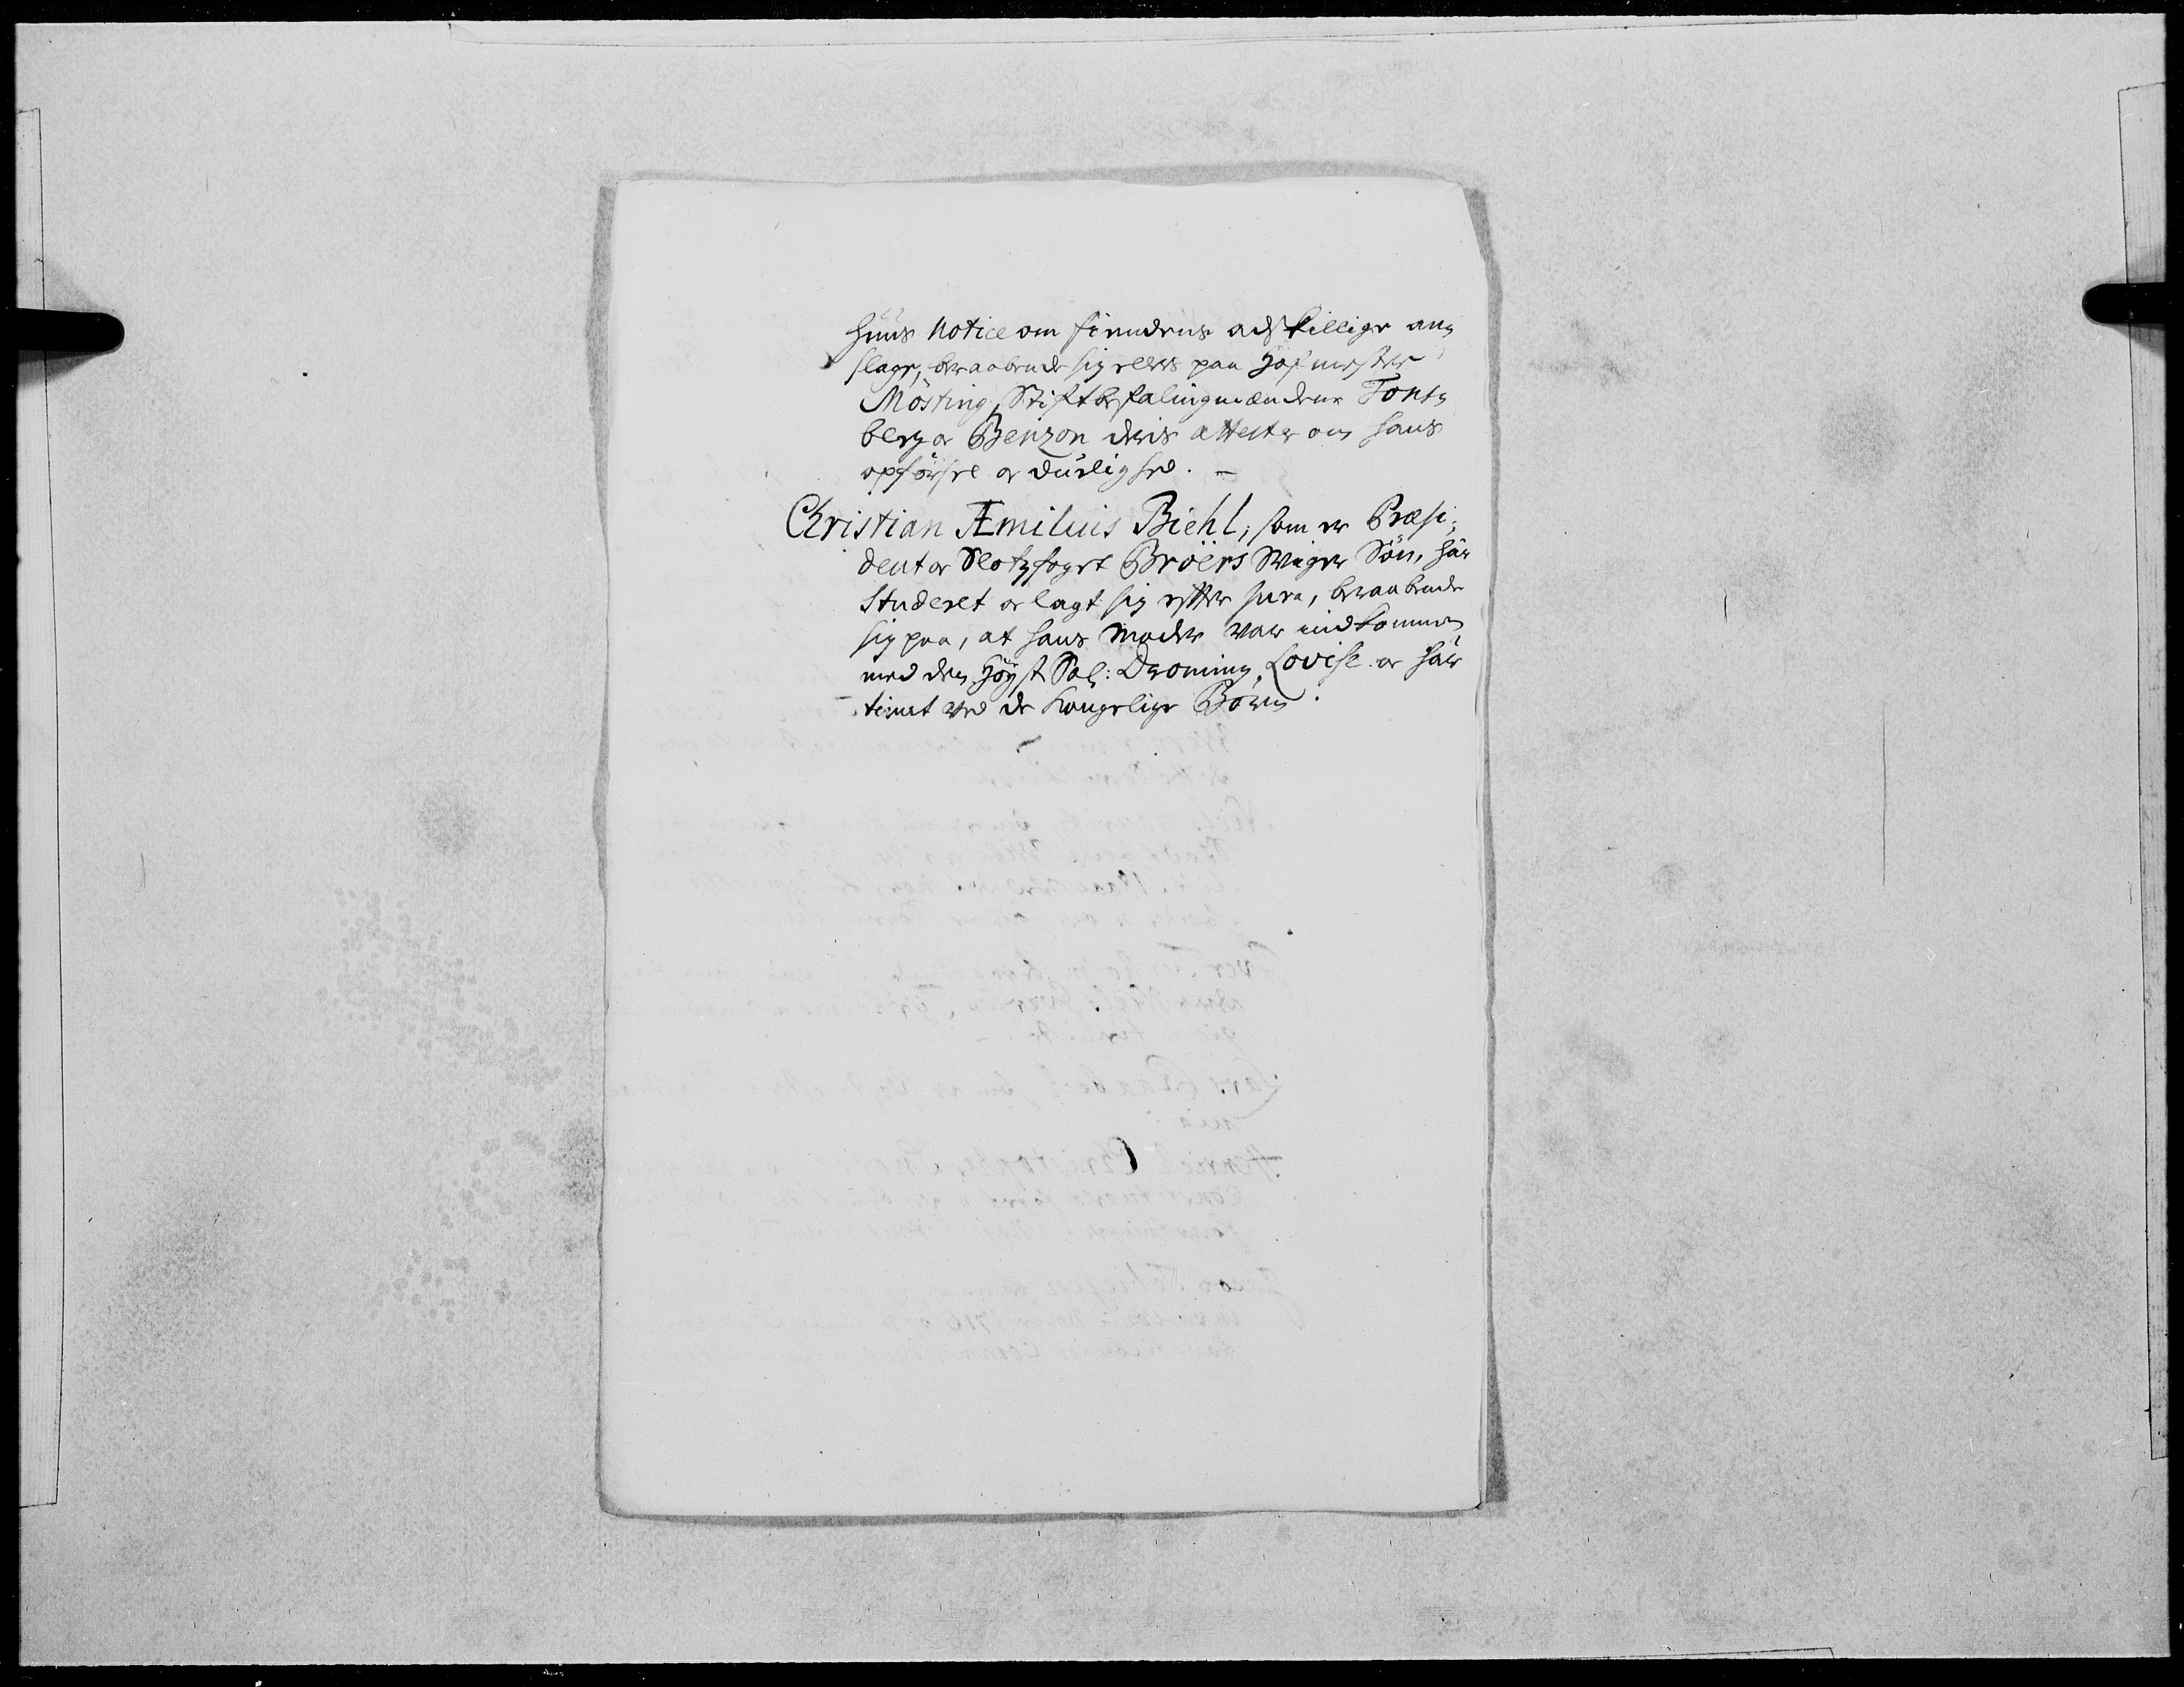 huus Notice om fiendens adskillige an¬
slage, beraabende sig ellers paa Hofmester
Mösting, Stiftbefalingmændene Tons¬
berg og Benzon deris attester om hans
opförsel og duelighed. -
Christian Æmilius Biehl, som er Præsi¬
dent og Slotzfoget Bröers Sviger Sön, har
Studeret og lagt sig efter jura, beraabende
sig paa, at hans Moder var indkommen
med den Höyst Sal: Dronning Lovise og har
tient ved de Kongelige Börn.